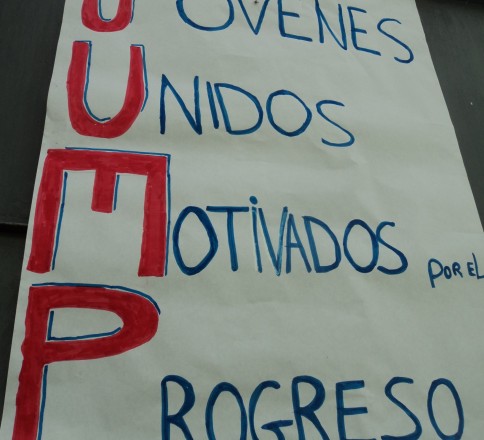 JOVENES
UNIDOS
MOTIVADOS POR EL
PROGRESO